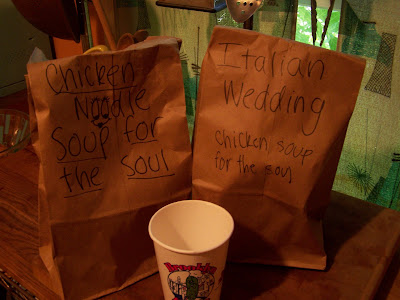 Chicken
Noodle
Soup for
the soul
Italian
Wedding
chicken soup
for the soul